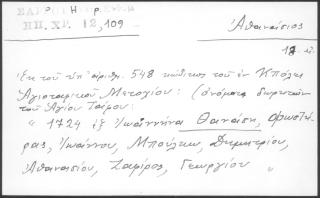 ΠΠ. ΧΡ. 12, 109
Ἀθανάσιος
Ἐκ τοῦ ὑπ' ἀριθμ. 548 κώδικος τοῦ ἐν Κπόλει
Ἁγιοταφικοῦ Μετοχίου: (ὀνόματα δωρητῶν
τοῦ Ἁγίου Τάφου:
" 1724 ἐξ Ἰωαννίνα Θανάση,
Ἰωάννου, Μπούλκω, Δημητρίου,
Ἀθανασίου, Ζαφίρος, Γεωργίου "